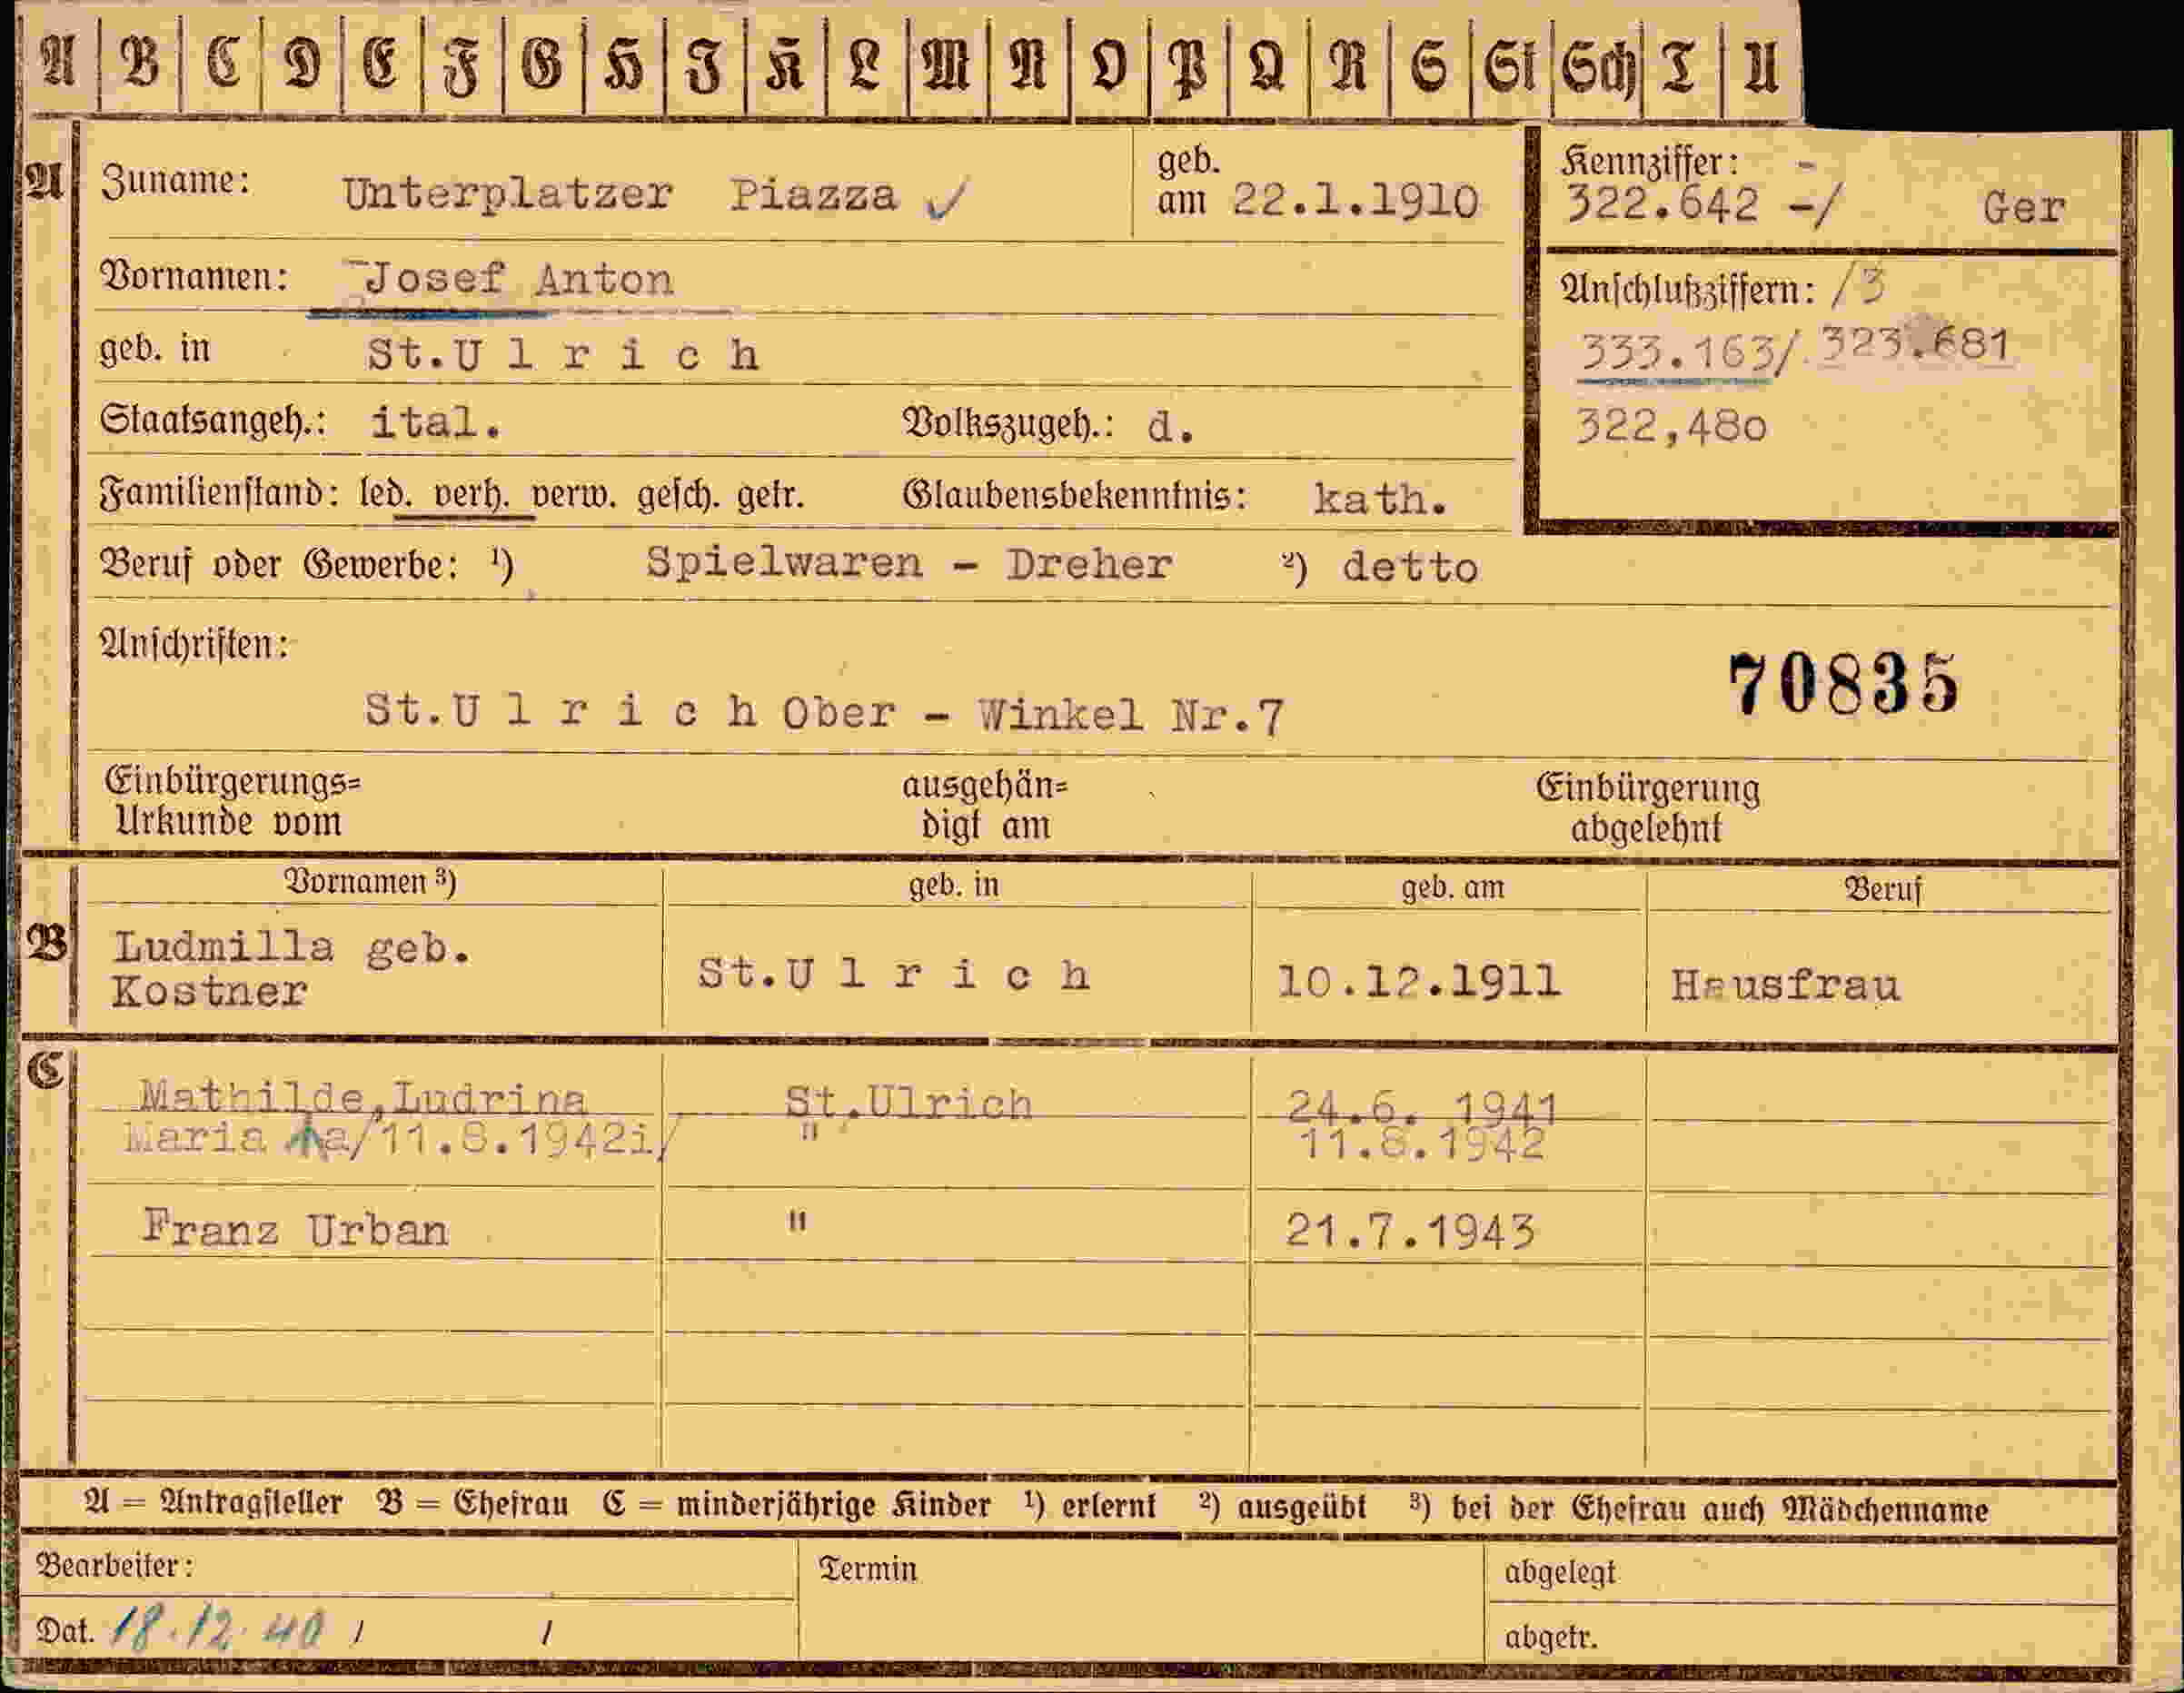 A B C D E F G H I K L M N O P Q R S St Sch T U
A
Zuname: Unterplatzer Piazza ✓
geb. am 22.1.1910
Kennziffer: -
322.642 -/ Ger
Vornamen: Josef Anton
Anschlußziffern: /3
333.163/ 323.681
322,480
geb. in St.U l r i c h
Staatsangeh.: ital. Volkszugeh.: d.
Familienstand: led. verh. verw. gesch. getr. Glaubensbekenntnis: kath.
Beruf oder Gewerbe: ¹) Spielwaren - Dreher ²) detto
Anschriften:
70835
St.U l r i c h Ober - Winkel Nr.7
Einbürgerungs=
Urkunde vom
ausgehän=
digt am
Einbürgerung
abgelehnt
Vornamen ³) geb. in geb. am Beruf
B
Ludmilla geb.
Kostner
St.U l r i c h 10.12.1911 Hausfrau
C
Mathilde,Ludrina St.Ulrich 24.6. 1941
Maria /11.8.1942i/ " 11.8.1942
Franz Urban " 21.7.1943
A = Antragsteller B = Ehefrau C = minderjährige Kinder ¹) erlernt ²) ausgeübt ³) bei der Ehefrau auch Mädchenname
Bearbeiter: Termin abgelegt
Dat. 18.12.40 / / abgetr.